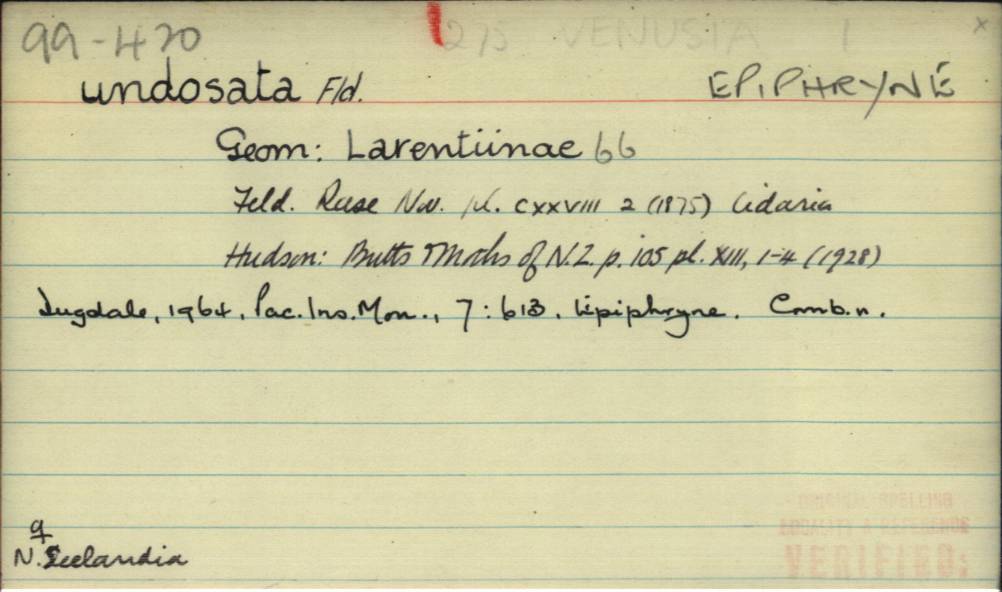 99-420 275 VENUSIA 1 x
undosata Fld. EPIPHRYNÉ
Geom: Larentiinae 66
Feld. Reise Nov. pl. CXXVIII 2 (1875) Cidaria
Hudson: Butts Moths of N.Z. p. 105 pl. XIII, 1-4 (1928)
Dugdale, 1964, Pac. Ins. Mon., 7: 613. Epiphryne. Comb. n.
ORIGINAL SPELLING
LOCALITY & REFERENCE
VERIFIED:
♀
N. Seelandia